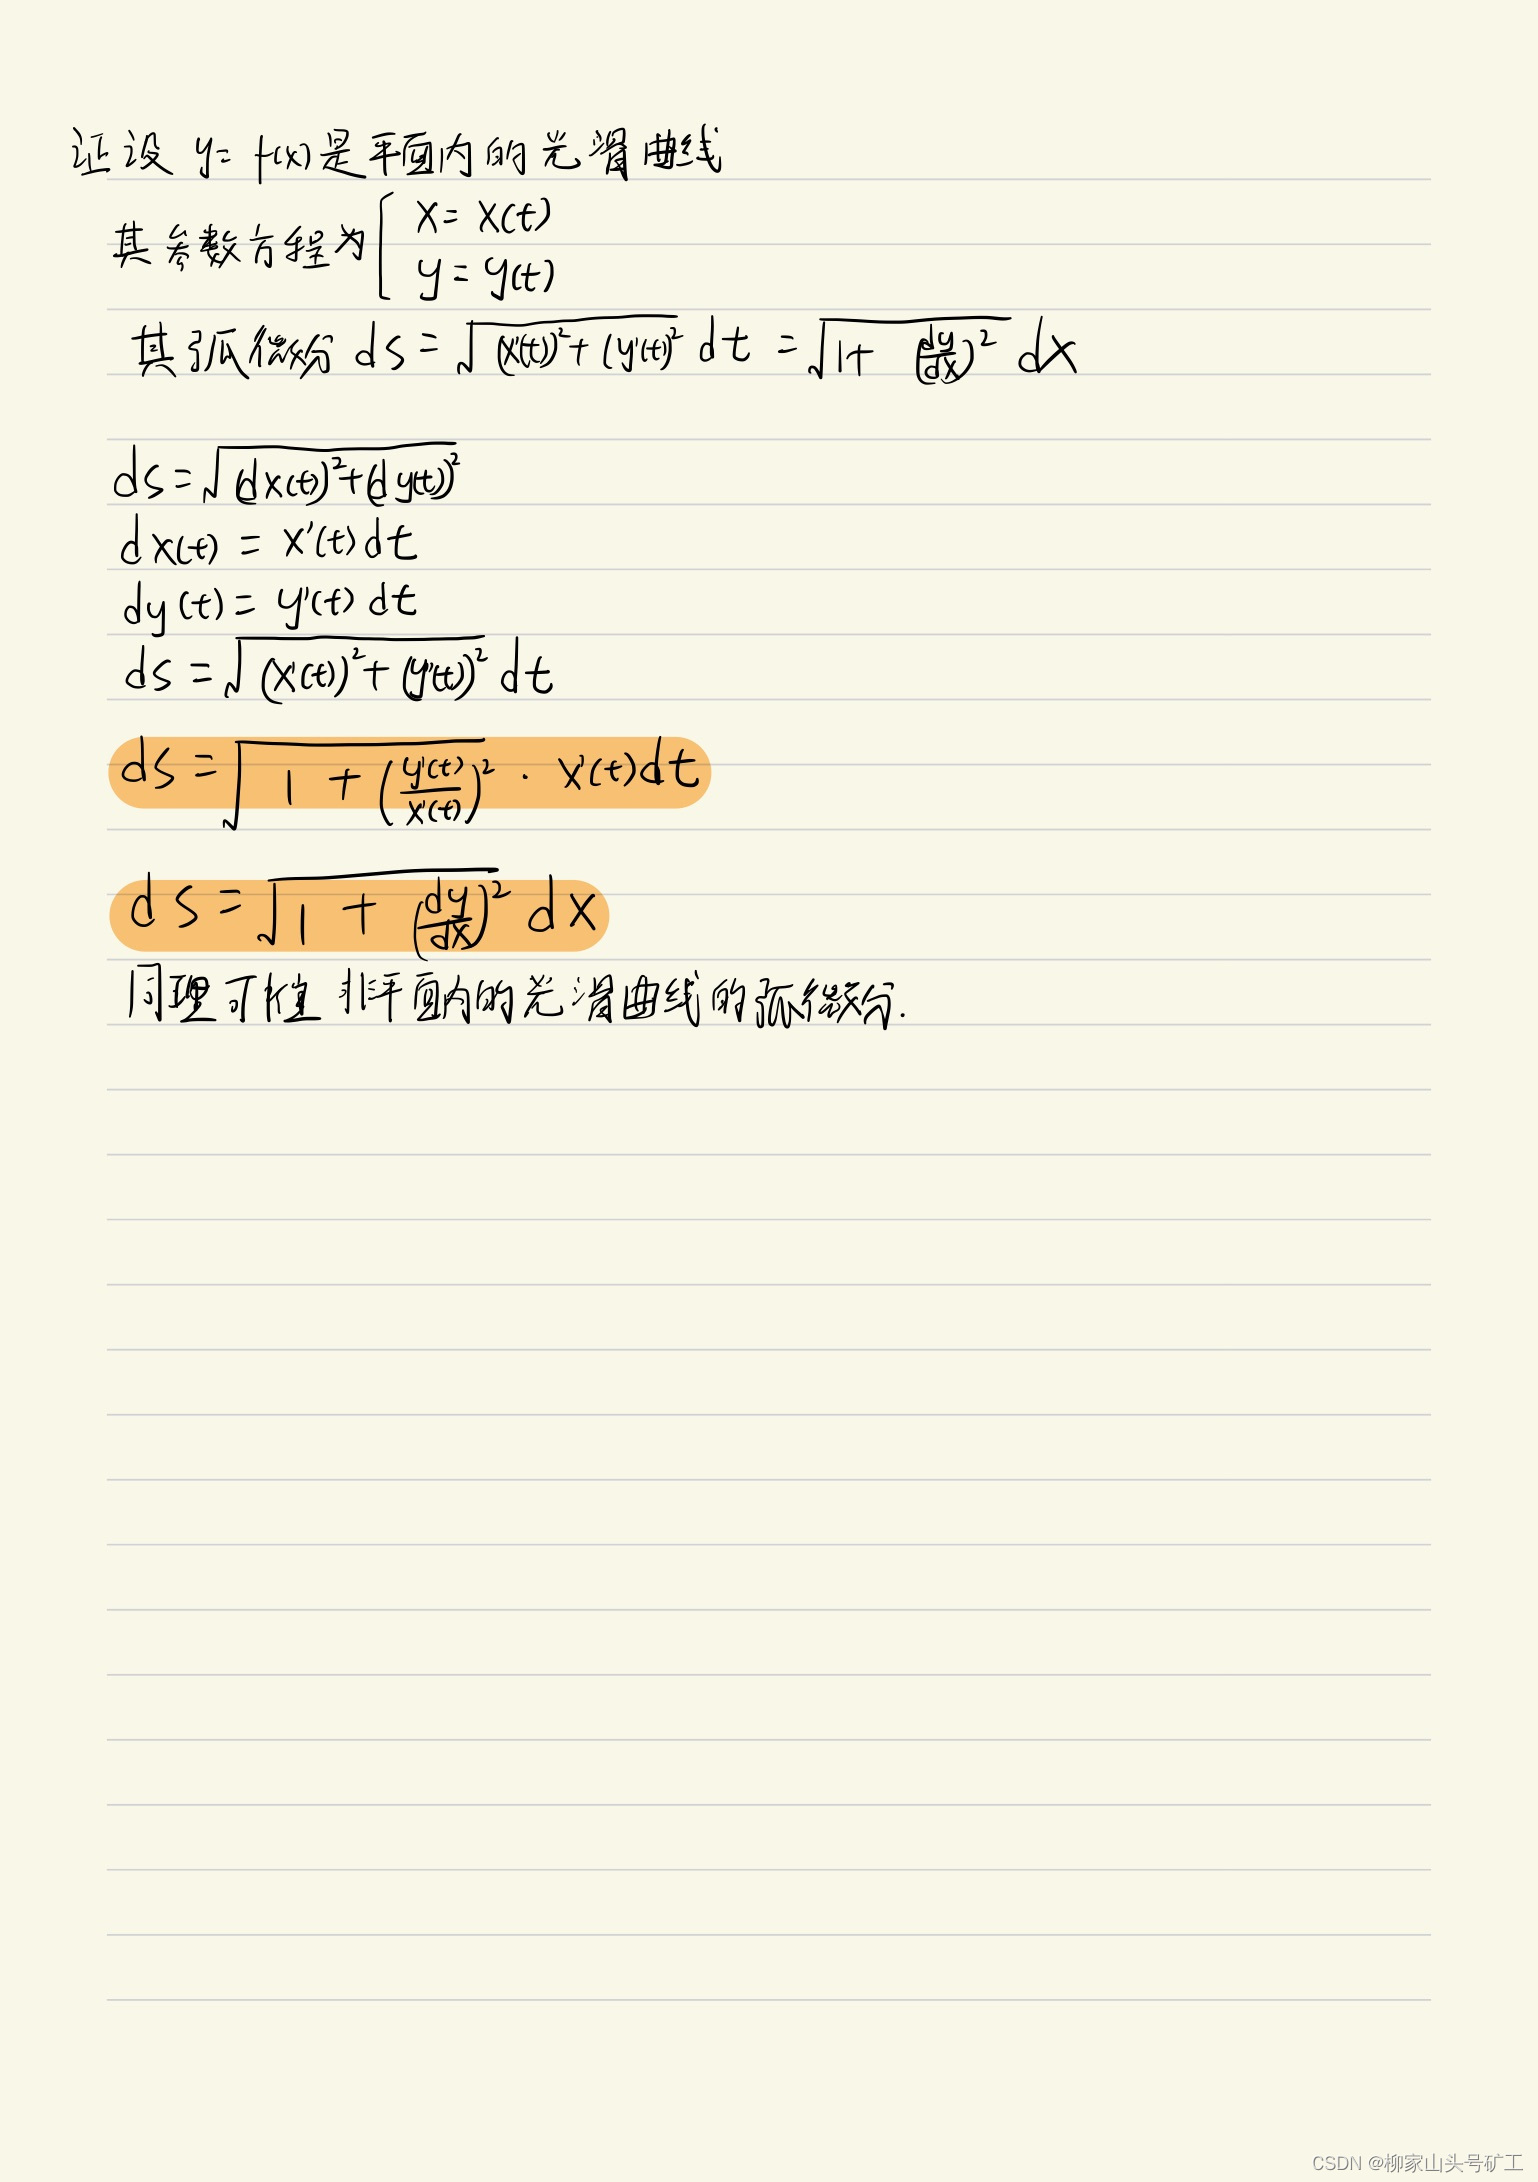 证设 y = f(x) 是平面内的光滑曲线
其参数方程为 { x = x(t)
y = y(t)
其弧微分 ds = √((x'(t))² + (y'(t))²) dt = √(1 + (dy/dx)²) dx
ds = √((dx(t))² + (dy(t))²)
dx(t) = x'(t) dt
dy(t) = y'(t) dt
ds = √((x'(t))² + (y'(t))²) dt
ds = √(1 + (y'(t)/x'(t))²) · x'(t) dt
ds = √(1 + (dy/dx)²) dx
同理可推 非平面内的光滑曲线的弧微分.
CSDN @柳家山头号矿工